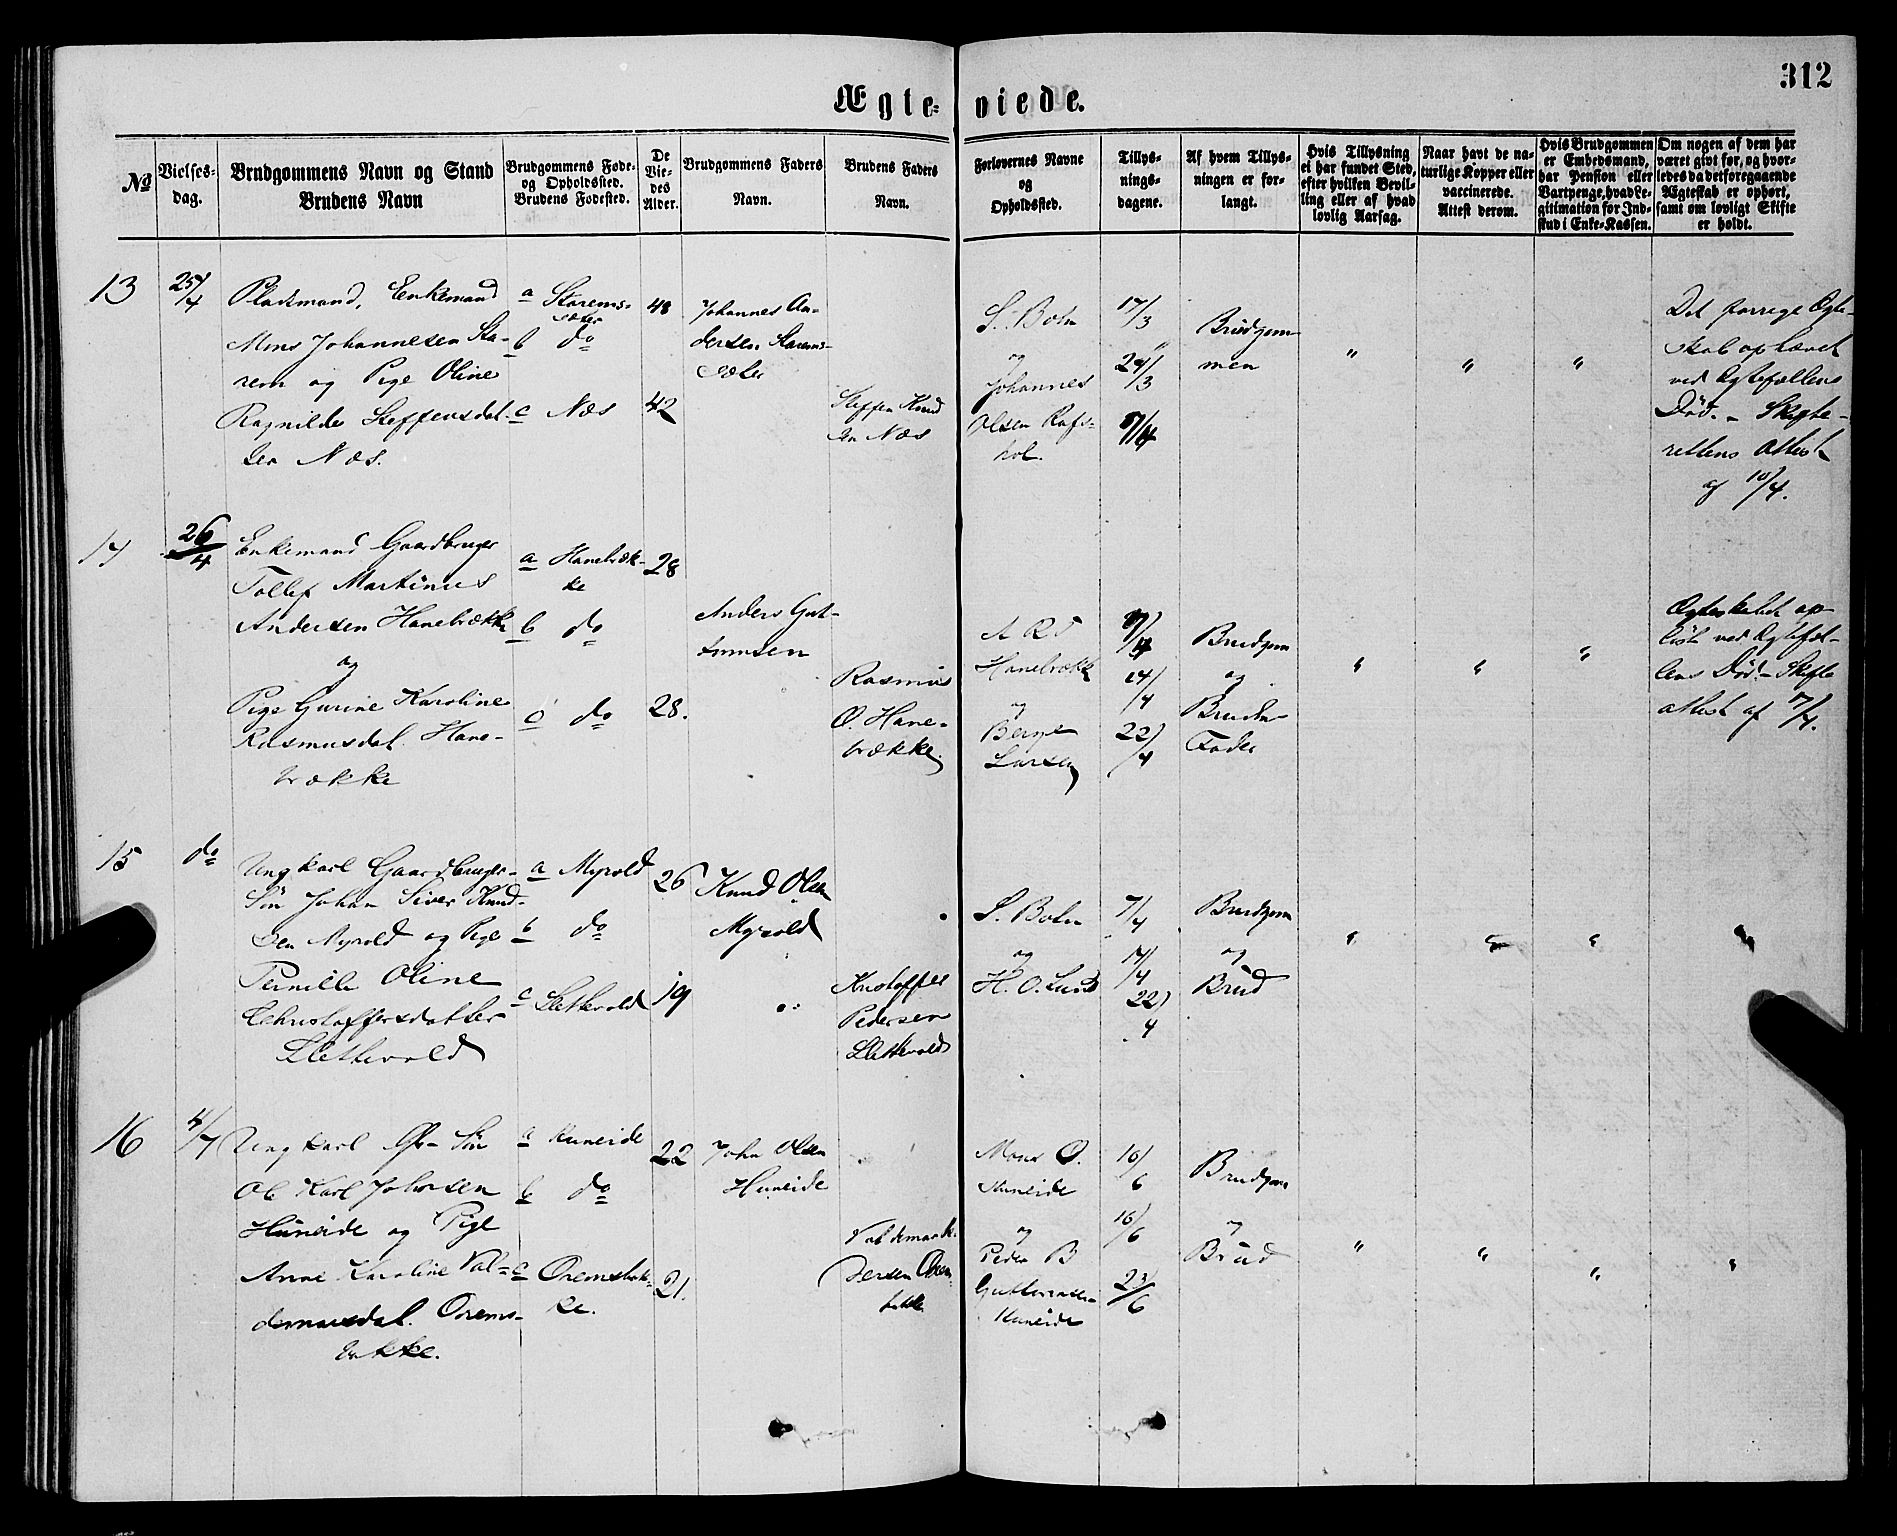 312
Ægte- viede.
No
Vielses-
dag.
Brudgommens Navn og Stand
Brudens Navn
Brudgommens Føde-
og Opholdssted.
Brudens Fødested.
De
Vie-
des
Alder.
Brudgommens Faders
Navn.
Brudens Faders
Navn.
Forlovernes Navne
og
Opholdssted.
Tillys-
nings-
dagene.
Af hvem Tillys-
ningen er for-
langt.
Hvis Tillysning
ei har fundet Sted,
efter hvilken Bevil-
ling eller af hvad
lovlig Aarsag.
Naar havt de na-
turlige Kopper eller
vaccinerede.
Attest derom.
Hvis Brudgommen
er Embedsmand,
har Pension eller
Vartpenge, hvad Le-
gitimation for Ind-
skud i Enke-Kassen.
Om nogen af dem har
været givt før, og hvor-
ledes da det foregaaende
Ægteskab er ophørt,
samt om lovligt Skifte
er holdt.
13
25/4
Pladsmand, Enkemand
Mons Johannesen Sta-
rem og Pige Oline
Ragnilde Steffensdat-
ter Næs.
a Starems-
sæter
b do
c Næs
48
42
Johannes An-
dersen Starems-
sæter
Steffen Knud
sen Næs
S. Bohn
og
Johannes
Olsen Rafs-
hol.
17/3
24/3
Brudgom
men
" " "
Det forrige Ægte-
skab ophævet
ved Ægtefællens
Død. - Skifte-
rettens Attest
af 10/4.
14
26/4
Enkemand Gaardbruger
Tollef Martinus
Andersen Hanebrække
og
Pige Gurine Karoline
Rasmusdat. Hane-
brække
a Hanebræk-
ke
b do
c do
28
28.
Anders Gut-
tormsen
Rasmus
O. Hane-
brække
Hanebrække
og
Berge
Larsen
14/4
22/4
Brudgom
og
Brudens
Fader
" " "
Ægteskabet op-
løst ved Ægtefæl-
lens Død. - Skifte
attest af 7/4.
15
do
Ungkarl Gaardbruger-
Søn Johan Siver Knud-
sen Myrold og Pige
Pernille Oline
Christoffersdatter
Slettevold
a Myrold
b do
c Slettevold
26
19
Knud Olsen
Myrold
Kristoffer
Pedersen
Slettevold
S. Bohn
og
H. O. Lund
7/4
14/4
22/4
Brudgom
og
Brud
" " " "
16
4/7
Ungkarl Gb- Søn
Ole Karl Johnsen
Huneide og Pige
Anne Karoline Val-
demarsdat. Orems-
bakke.
a Huneide
b do
c Oremsbak-
ke.
22
21.
John Olsen
Huneide
Mons O.
Huneide
og
Peder B
Guttormsen
Huneide
16/6
23/6
Brudgom
og
Brud
" " " "